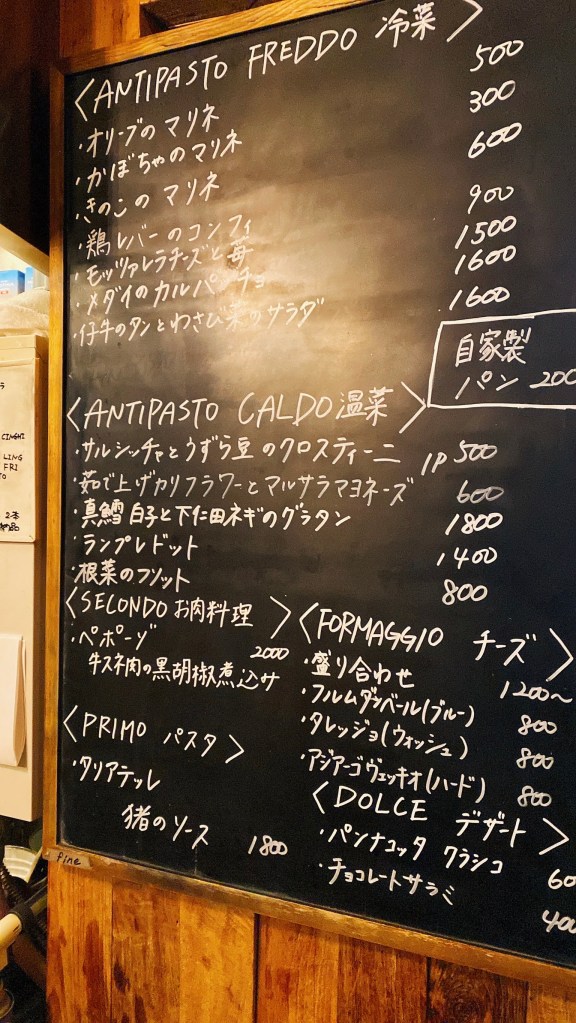 <ANTIPASTO FREDDO 冷菜>
・オリーブのマリネ 500
・かぼちゃのマリネ 300
・きのこのマリネ 600
・鶏レバーのコンフィ 900
・モッツァレラチーズと苺 1500
・メダイのカルパッチョ 1600
・仔牛のタンとわさび菜のサラダ 1600
自家製
パン 200
<ANTIPASTO CALDO 温菜>
・サルシッチャとうずら豆のクロスティーニ 1P 500
・茹で上げカリフラワーとマルサラマヨネーズ 600
・真鱈白子と下仁田ネギのグラタン 1800
・ランプレドット 1400
・根菜のフリット 800
<SECONDO お肉料理>
・ペポーゾ 2000
牛スネ肉の黒胡椒煮込み
<PRIMO パスタ>
・タリアテッレ
猪のソース 1800
<FORMAGGIO チーズ>
・盛り合わせ 1200~
・フルムダンベール(ブルー) 800
・タレッジョ(ウォッシュ) 800
・アジアーゴヴェッキオ(ハード) 800
<DOLCE デザート>
・パンナコッタ クラシコ 60
・チョコレートサラミ 400
Pine
CINGHI
LING
FRI
TO